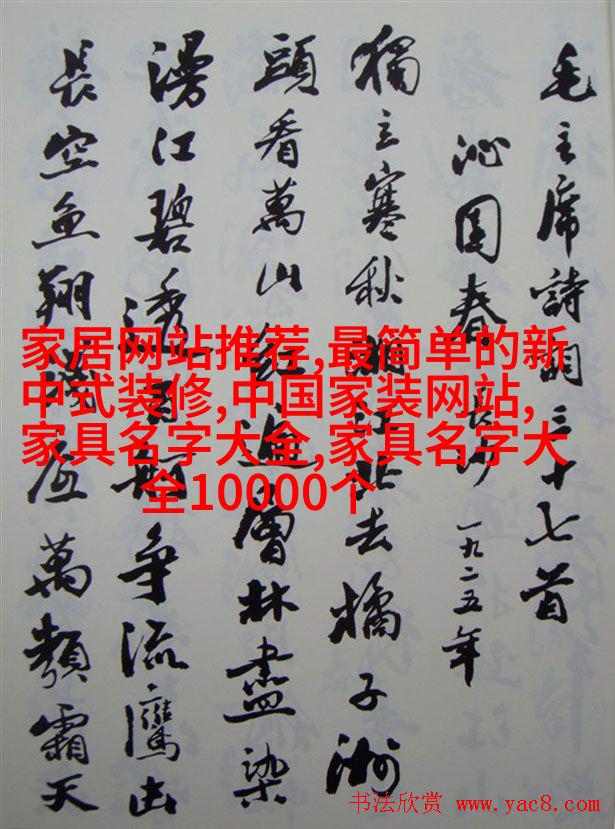 毛主席詩詞三十七首
沁园春 長沙 一九二五年
獨立寒秋湘江北去橘子洲
頭看萬山红遍層林盡染
漫江碧透百舸争流鷹击
長空鱼翔淺底萬類霜天
家居网站推荐,最简单的新
中式装修,中国家装网站,
家具名字大全,家具名字大
全10000个
书法欣赏 www.yac8.com